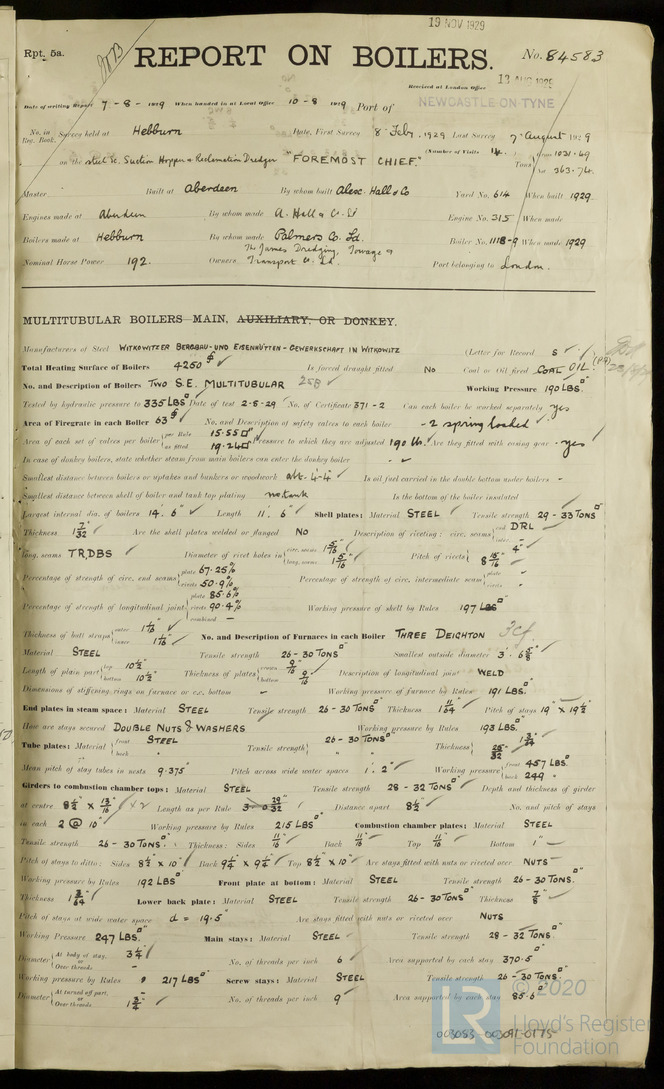 19 NOV 1929
Rpt. 5a.
REPORT ON BOILERS.
No. 84583
Received at London Office
13 AUG 1929
Date of writing Report 7-8-1929 When handed in at Local Office 10-8-1929 Port of NEWCASTLE-ON-TYNE
No. in Reg. Book. Survey held at Hebburn Date, First Survey 8 Feby. 1929 Last Survey 7 August 1929
on the steel Sc. Suction Hopper & Reclamation Dredger "FOREMOST CHIEF." (Number of Visits 14 Tons
Master Built at Aberdeen By whom built Alex. Hall & Co Yard No. 614 When built 1929
Engines made at Aberdeen By whom made A. Hall & Co Ld Engine No. 315 When made
Boilers made at Hebburn By whom made Palmers Co. Ld. Boiler No. 1118-9 When made 1929
Nominal Horse Power 192. Owners The James Dredging, Towage & Transport Co. Ld. Port belonging to London.
MULTITUBULAR BOILERS MAIN, AUXILIARY, OR DONKEY.
Manufacturers of Steel WITKOWITZER BERGBAU-UND EISENHÜTTEN-GEWERKSCHAFT IN WITKOWITZ (Letter for Record S)
Total Heating Surface of Boilers 4250 Is forced draught fitted No Coal or Oil fired COAL OIL.
No. and Description of Boilers TWO S.E. MULTITUBULAR Working Pressure 190 LBS.
Tested by hydraulic pressure to 335 LBS Date of test 2-8-29 No. of Certificate 371-2 Can each boiler be worked separately yes
Area of Firegrate in each Boiler 63 No. and Description of safety valves to each boiler 2 spring loaded
Area of each set of valves per boiler per Rule 15.55 as fitted 19.24 Pressure to which they are adjusted 190 lb. Are they fitted with easing gear yes
In case of donkey boilers, state whether steam from main boilers can enter the donkey boiler -
Smallest distance between boilers or uptakes and bunkers or woodwork abt. 4'-4" Is oil fuel carried in the double bottom under boilers -
Smallest distance between shell of boiler and tank top plating no tank Is the bottom of the boiler insulated
Largest internal dia. of boilers 14'. 6" Length 11'. 6" Shell plates: Material STEEL Tensile strength 29-33 TONS
Thickness Are the shell plates welded or flanged No Description of riveting: circ. seams end DRL inter. -
long. seams TR,DBS Diameter of rivet holes in circ. seams 1 5/16" long. seams 1 5/16" Pitch of rivets 4" 8 15/16"
Percentage of strength of circ. end seams plate 67.25% rivets 50.9% Percentage of strength of circ. intermediate seam plate - rivets -
Percentage of strength of longitudinal joint plate 85.6% rivets 90.4% combined - Working pressure of shell by Rules 197 LBS
Thickness of butt straps outer 1 1/16" inner 1 1/16" No. and Description of Furnaces in each Boiler THREE DEIGHTON 3cf.
Material STEEL Tensile strength 26-30 TONS Smallest outside diameter 3'. 6 5/8"
Length of plain part top 10 1/2" bottom 10 1/2" Thickness of plates crown 9/16" bottom 9/16" Description of longitudinal joint WELD
Dimensions of stiffening rings on furnace or c.c. bottom - Working pressure of furnace by Rules 191 LBS.
End plates in steam space: Material STEEL Tensile strength 26-30 TONS Thickness 1 11/64" Pitch of stays 19" x 19 1/2"
How are stays secured DOUBLE NUTS & WASHERS Working pressure by Rules 193 LBS.
Tube plates: Material front STEEL back " Tensile strength 26-30 TONS " " Thickness 1 3/64" 25/32"
Mean pitch of stay tubes in nests 9.375" Pitch across wide water spaces 1'. 2" Working pressure front 457 LBS back 249 "
Girders to combustion chamber tops: Material STEEL Tensile strength 28-32 TONS Depth and thickness of girder
at centre 8 1/2" x 13/16" x 2 Length as per Rule Distance apart 8 1/2" No. and pitch of stays
in each 2 @ 10" Working pressure by Rules 215 LBS Combustion chamber plates: Material STEEL
Tensile strength 26-30 TONS. Thickness: Sides 11/16" Back 11/16" Top 11/16" Bottom 1"
Pitch of stays to ditto: Sides 8 1/2" x 10" Back 9 1/4" x 9 1/4" Top 8 1/2" x 10" Are stays fitted with nuts or riveted over NUTS
Working pressure by Rules 192 LBS Front plate at bottom: Material STEEL Tensile strength 26-30 TONS.
Thickness 1 3/64" Lower back plate: Material STEEL Tensile strength 26-30 TONS Thickness 7/8"
Pitch of stays at wide water space d = 19.5" Are stays fitted with nuts or riveted over NUTS
Working Pressure 247 LBS Main stays: Material STEEL Tensile strength 28-32 TONS.
Diameter At body of stay, or Over threads 3 1/4" - No. of threads per inch 6 Area supported by each stay 370.5
Working pressure by Rules 217 LBS Screw stays: Material STEEL Tensile strength 26-30 TONS
Diameter At turned off part, or Over threads 1 3/4" No. of threads per inch 9 Area supported by each stay 85.6
© 2020
LR Lloyd's Register Foundation
003083-003091-0175